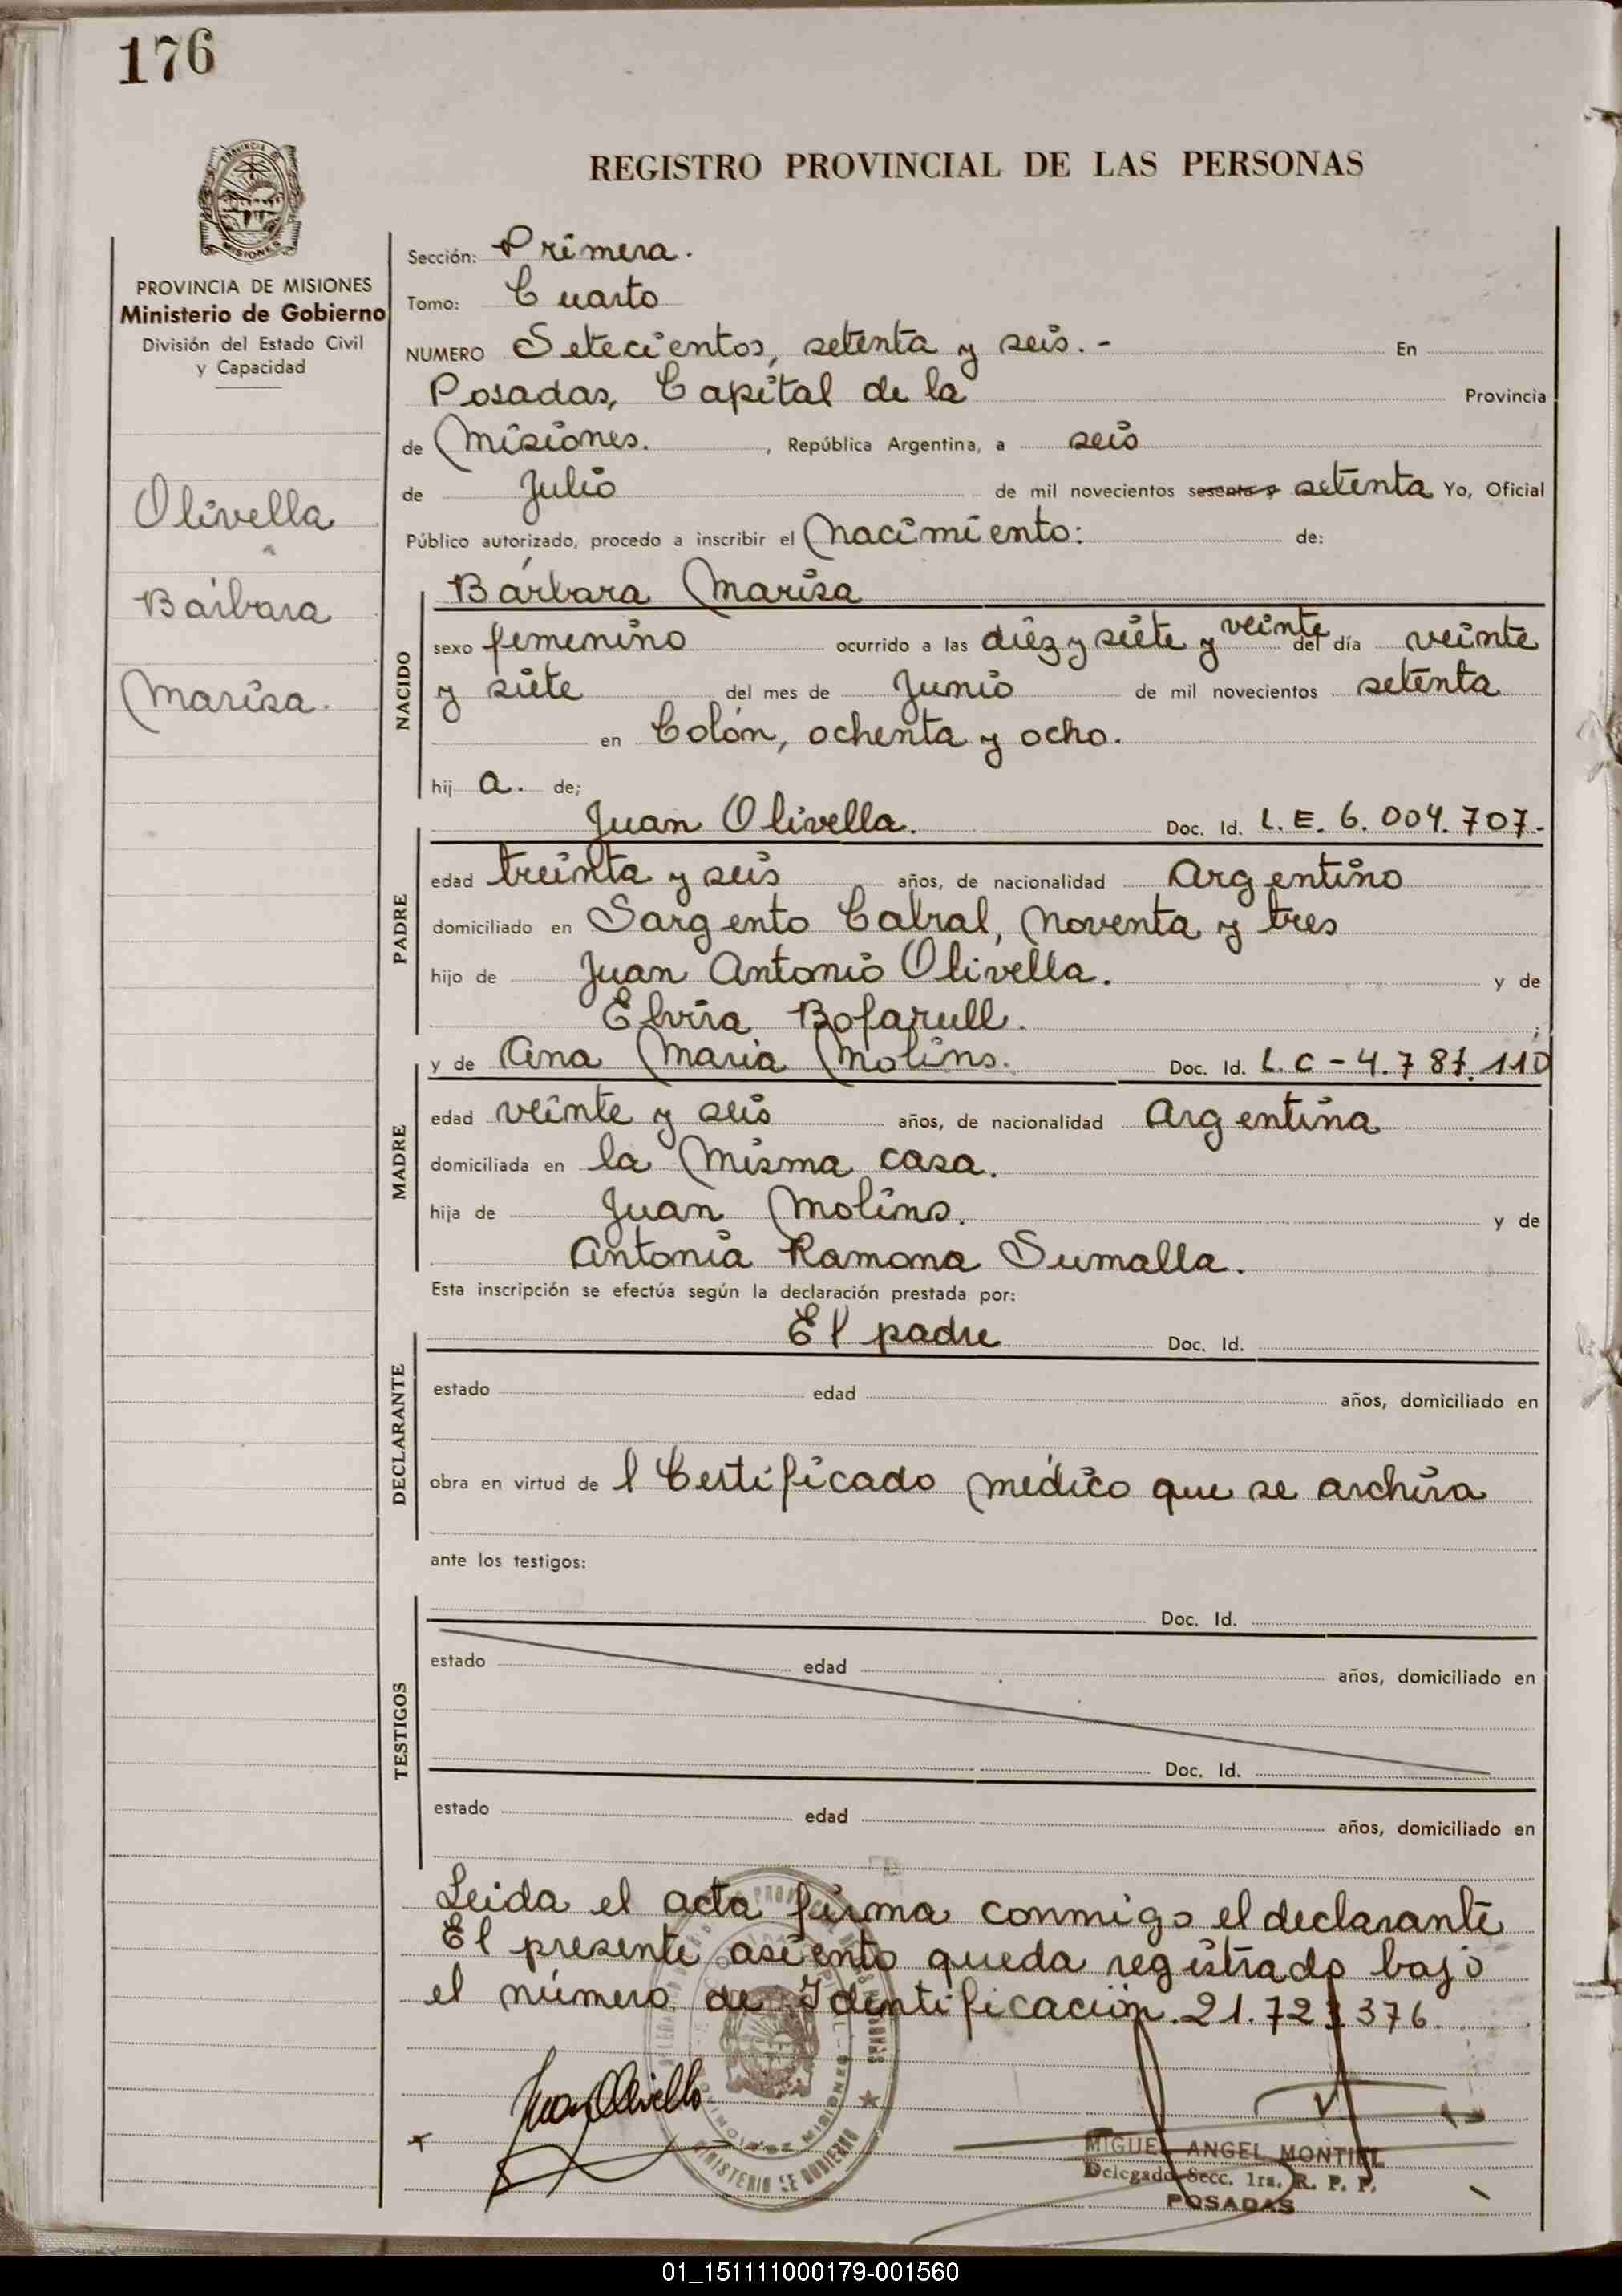 176
REGISTRO PROVINCIAL DE LAS PERSONAS
PROVINCIA DE MISIONES
Ministerio de Gobierno
División del Estado Civil
y Capacidad
Olivella
Bárbara
Marisa.
Sección: Primera.
Tomo: Cuarto
NUMERO Setecientos, setenta y seis. - En
Posadas, Capital de la Provincia
de Misiones. , República Argentina, a seis
de Julio de mil novecientos sesenta y setenta Yo, Oficial
Público autorizado, procedo a inscribir el Nacimiento: de:
Bárbara Marisa
NACIDO
sexo femenino ocurrido a las diéz y siete y veinte del día veinte
y siete del mes de Junio de mil novecientos setenta
en Colón, ochenta y ocho.
hij a. de;
Juan Olivella. Doc. Id. L.E. 6.004.707-
PADRE
edad treinta y seis años, de nacionalidad Argentino
domiciliado en Sargento Cabral, Noventa y tres
hijo de Juan Antonio Olivella. y de
Elvira Bofarull. ;
y de Ana Maria Molins. Doc. Id. L.C-4.787.110
MADRE
edad veinte y seis años, de nacionalidad Argentina
domiciliada en la Misma casa.
hija de Juan Molins. y de
Antonia Ramona Sumalla.
Esta inscripción se efectúa según la declaración prestada por:
El padre Doc. Id.
DECLARANTE
estado edad años, domiciliado en
obra en virtud de l Certificado médico que se archiva
ante los testigos:
Doc. Id.
TESTIGOS
estado edad años, domiciliado en
Doc. Id.
estado edad años, domiciliado en
Leida el acta firma conmigo el declarante
El presente asiento queda registrado bajo
el número de Identificación. 21.723.376.
Juan Olivella
MIGUEL ANGEL MONTIEL
Delegado Secc. 1ra. R. P. P.
POSADAS
01_151111000179-001560